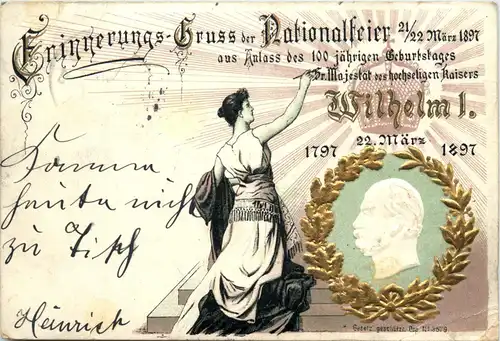 Erinnerungs-Gruss der Nationalfeier 21/22 März 1897
aus Anlass des 100 jährigen Geburtstages
Sr. Majestät des hochseligen Kaisers
Wilhelm I.
22. März
1797 1897
Komme
heute nich
zu Tisch
Heinrich
* Gesetz. geschützt.